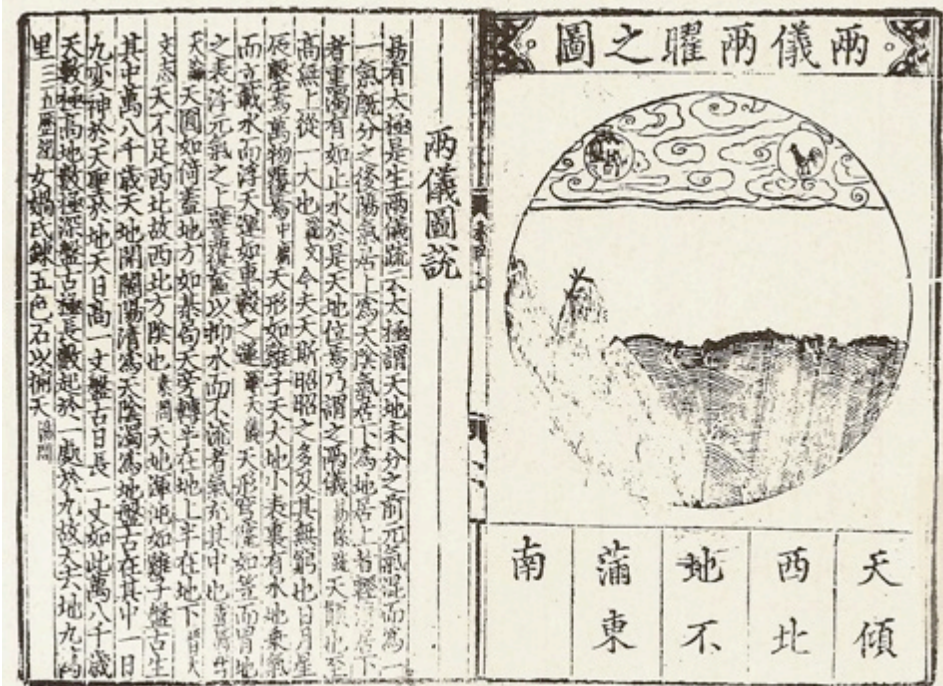 兩儀兩曜之圖
天傾
西北
地不
蒲東
南
兩儀圖說
易有太極是生兩儀疏云太極謂天地未分之前元氣混而為一
一氣既分之後陽氣居上為天陰氣居下為地居上者輕清居下
者重濁有如止水於是天地位焉乃謂之兩儀易係疏天顛也至
高無上從一大也說文今夫天斯昭昭之多及其無窮也日月星
辰繫焉萬物覆焉中庸天形如雞子天大地小表裏有水地乘氣
而立載水而浮天運如車轂之運渾天儀天形穹窿如笠而冒地
之表浮元氣之上譬覆奩以抑水而不流者氣充其中也
天論天圓如倚蓋地方如棊局天旁轉半在地上半在地下晉書天
文志天不足西北故西北方陰也素問天地渾沌如雞子盤古生
其中萬八千歲天地開闢陽清為天陰濁為地盤古在其中一日
九變神於天聖於地天日高一丈盤古日長一丈如此萬八千歲
天數極高地數極深盤古極長數起於一處於九故天去地九萬
里三五歷紀女媧氏鍊五色石以補天